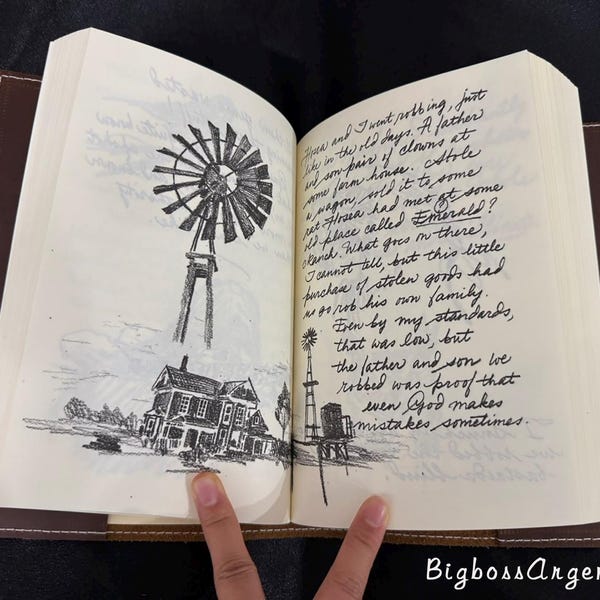 Hosea and I went robbing, just
like in the old days. A father
and son pair of clowns at
some farm house. Stole
a wagon, sold it to some
rat Hosea had met at some
old place called Emerald?
Ranch. What goes on there,
I cannot tell, but this little
purchase of stolen goods had
us go rob his own family.
Even by my standards,
that was low, but
the father and son we
robbed was proof that
even God makes
mistakes sometimes.
BigbossArgen